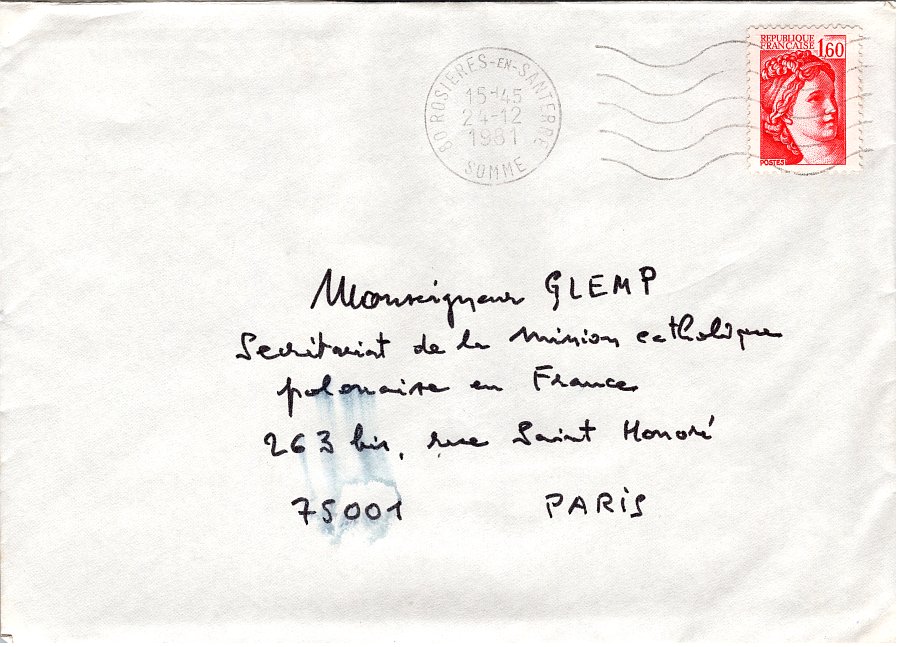 REPUBLIQUE
FRANCAISE 1,60
POSTES
80 ROSIERES-EN-SANTERRE
15-45
24-12
1981
SOMME
Monseigneur GLEMP
Secritariat de la mission catholique
polonaise en France
263 bis, rue Saint Honoré
75001 PARIS